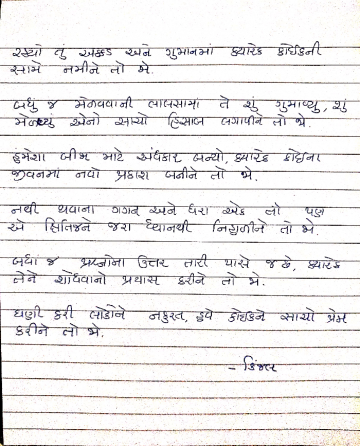 રહ્યો તું અક્કડ અને ગુમાનમાં ક્યારેક કોઈકની
સામે નમીને તો જો.
બધું જ મેળવવાની લાલસામાં તે શું ગુમાવ્યુ, શું
મેળવ્યું એનો સાચો હિસાબ લગાવીને તો જો.
હંમેશા બીજા માટે અંધકાર બન્યો, ક્યારેક કોઈના
જીવનમાં નવો પ્રકાશ બનીને તો જો.
નથી થવાના ગગન અને ધરા એક તો પણ
એ ક્ષિતિજને જરા ધ્યાનથી નિહાળીને તો જો.
બધાં જ પ્રશ્નોના ઉત્તર તારી પાસે જ છે, ક્યારેક
તેને શોધવાનો પ્રયાસ કરીને તો જો.
ઘણી કરી લીધી નફરત, હવે કોઈકને સાચો પ્રેમ
કરીને તો જો.
- કિંજલ